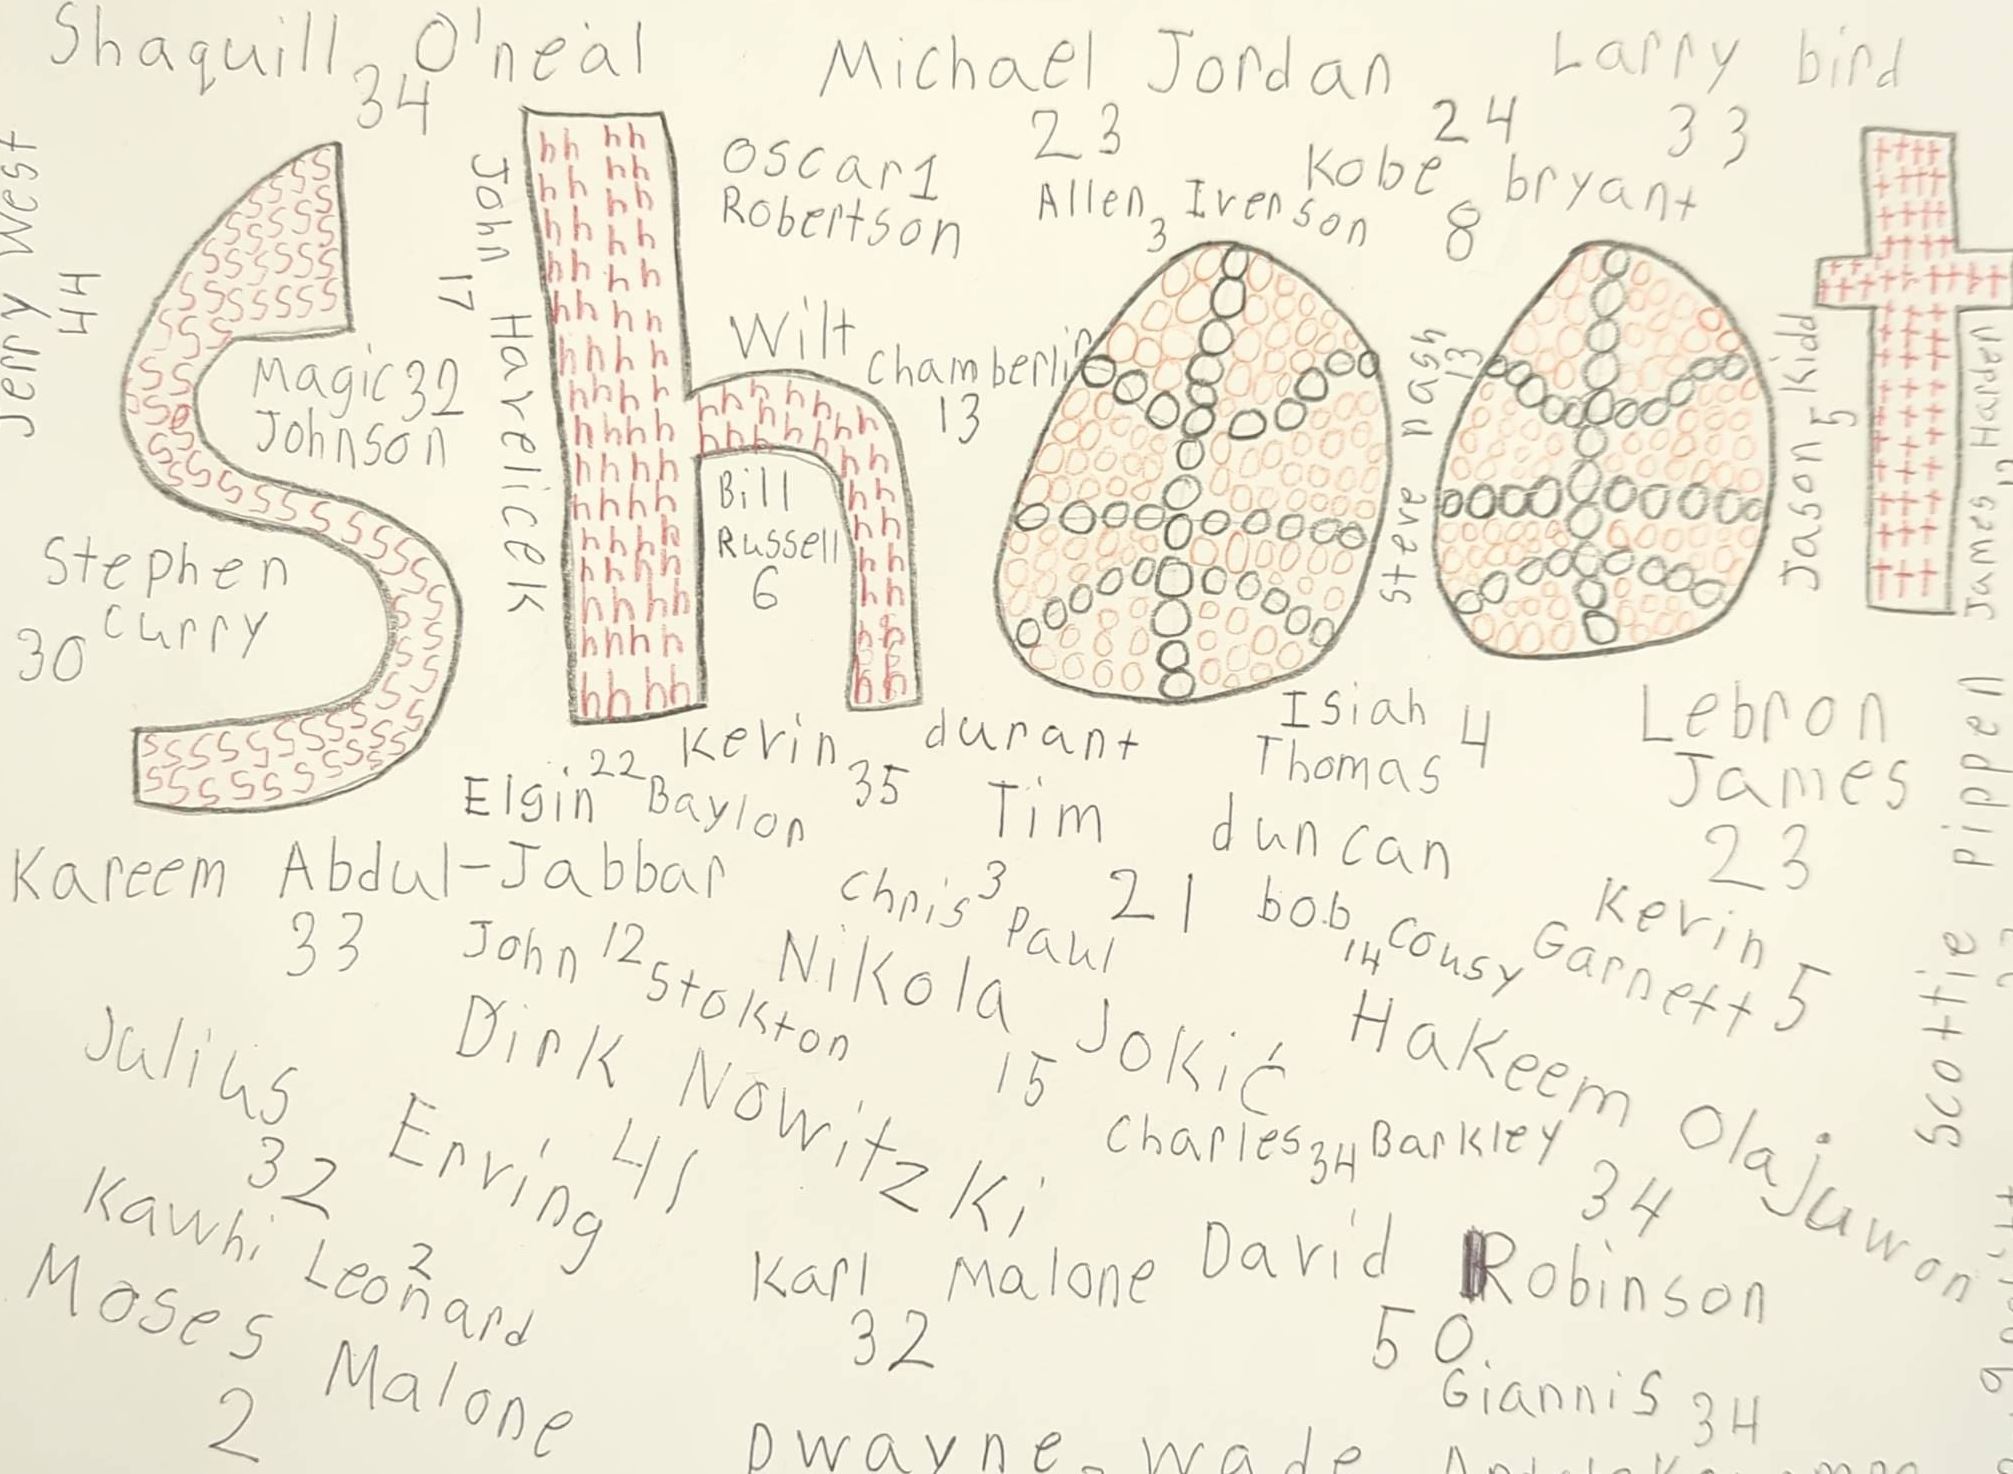 Shaquill O'neal
34
Michael Jordan
23
Larry bird
33
Jerry West
44
John Havelicek
17
Oscar 1
Robertson
Allen Iverson
3
24
Kobe bryant
8
Shoot
Magic 32
Johnson
Wilt Chamberlin
13
Bill
Russell
6
Steve nash
13
Jason Kidd
5
James Harden
Stephen
Curry
30
Kevin durant
35
Isiah 4
Thomas
Lebron
James
23
Elgin 22 Baylor
Tim duncan
21
Scottie pippen
Kareem Abdul-Jabbar
33
Chris 3 Paul
bob Cousy
14
Kevin
Garnett 5
John 12 Stokton
Nikola Jokić
15
Hakeem Olajuwon
34
Julius Erving
32
Dirk Nowitzki
41
Charles 34 Barkley
Kawhi Leonard
2
Karl Malone
32
David Robinson
50
Moses Malone
2
Giannis 34
Dwayne wade